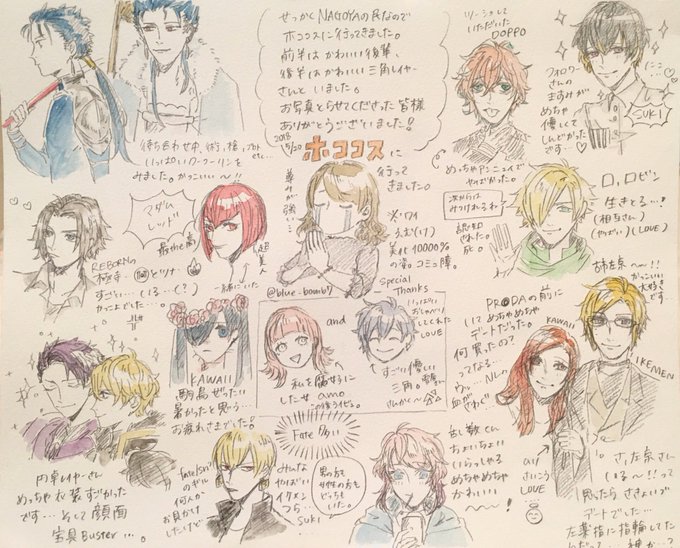 せっかくNAGOYAの民なので
ホココスに行ってきました。
前半はかわいい後輩、
後半はかわいい三角レイヤー
さんといました。
お写真とらせてくださった皆様
ありがとうございました!
2018
5/20
ホココスに
行って
きました。
尊みが
強い…
美化10000%
の姿。コミュ障。
@blue_bomb7
Special
Thanks
待ち合わせ中、術、槍、プロト
etc…
いっぱいのクーフーリンを
みました。かっこいい〜!!
ツーショして
いただいた
DOPPO
めっちゃアンニュイで
やばかった。
フォロワー
さんの
ますみが
めちゃ
優しくて
しんどかった
です…♡
SUKI
ロ,ロビン
生きとる…!
(相方さん)
(やばい)(LOVE)
次からは
みつけれるわ
認知
された。
死。
REBORNの
獄寺…
すごい…
かっこよでした…。
マダム
レッド
最the高
超美人
一緒にいた
KAWAII
駒鳥ぜったい
暑かったと思う…
お疲れさまでした!
and
私を腐女子に
した女 amo
いっぱい
おしゃべり
してくれた
LOVE
すごい優しい
三角。
さんかく〜△△
PRADAの前に
いてめちゃめちゃ
デートだった。
何買ったの?
ってなる…
KAWAII
かっこいい
大好き
です。
IKEMEN
all
さいこう
LOVE
さ,左京さん
(ほ〜!!って
思ったら
デートでした…
左薬指に指輪してた
神か…?
円卓レイヤーさん
めっちゃ衣装すごかった
です…そして顔面
宝具Buster…。
Fate多い
のギル
何人か
お見かけ
したけど
みんな
やばい
イケメン
つら…
SUKI
男の方も
女性の方も
どっちも
いた。
乱数くん
ちょいちょい
いらっしゃる
めちゃめちゃ
かわいい
〜!